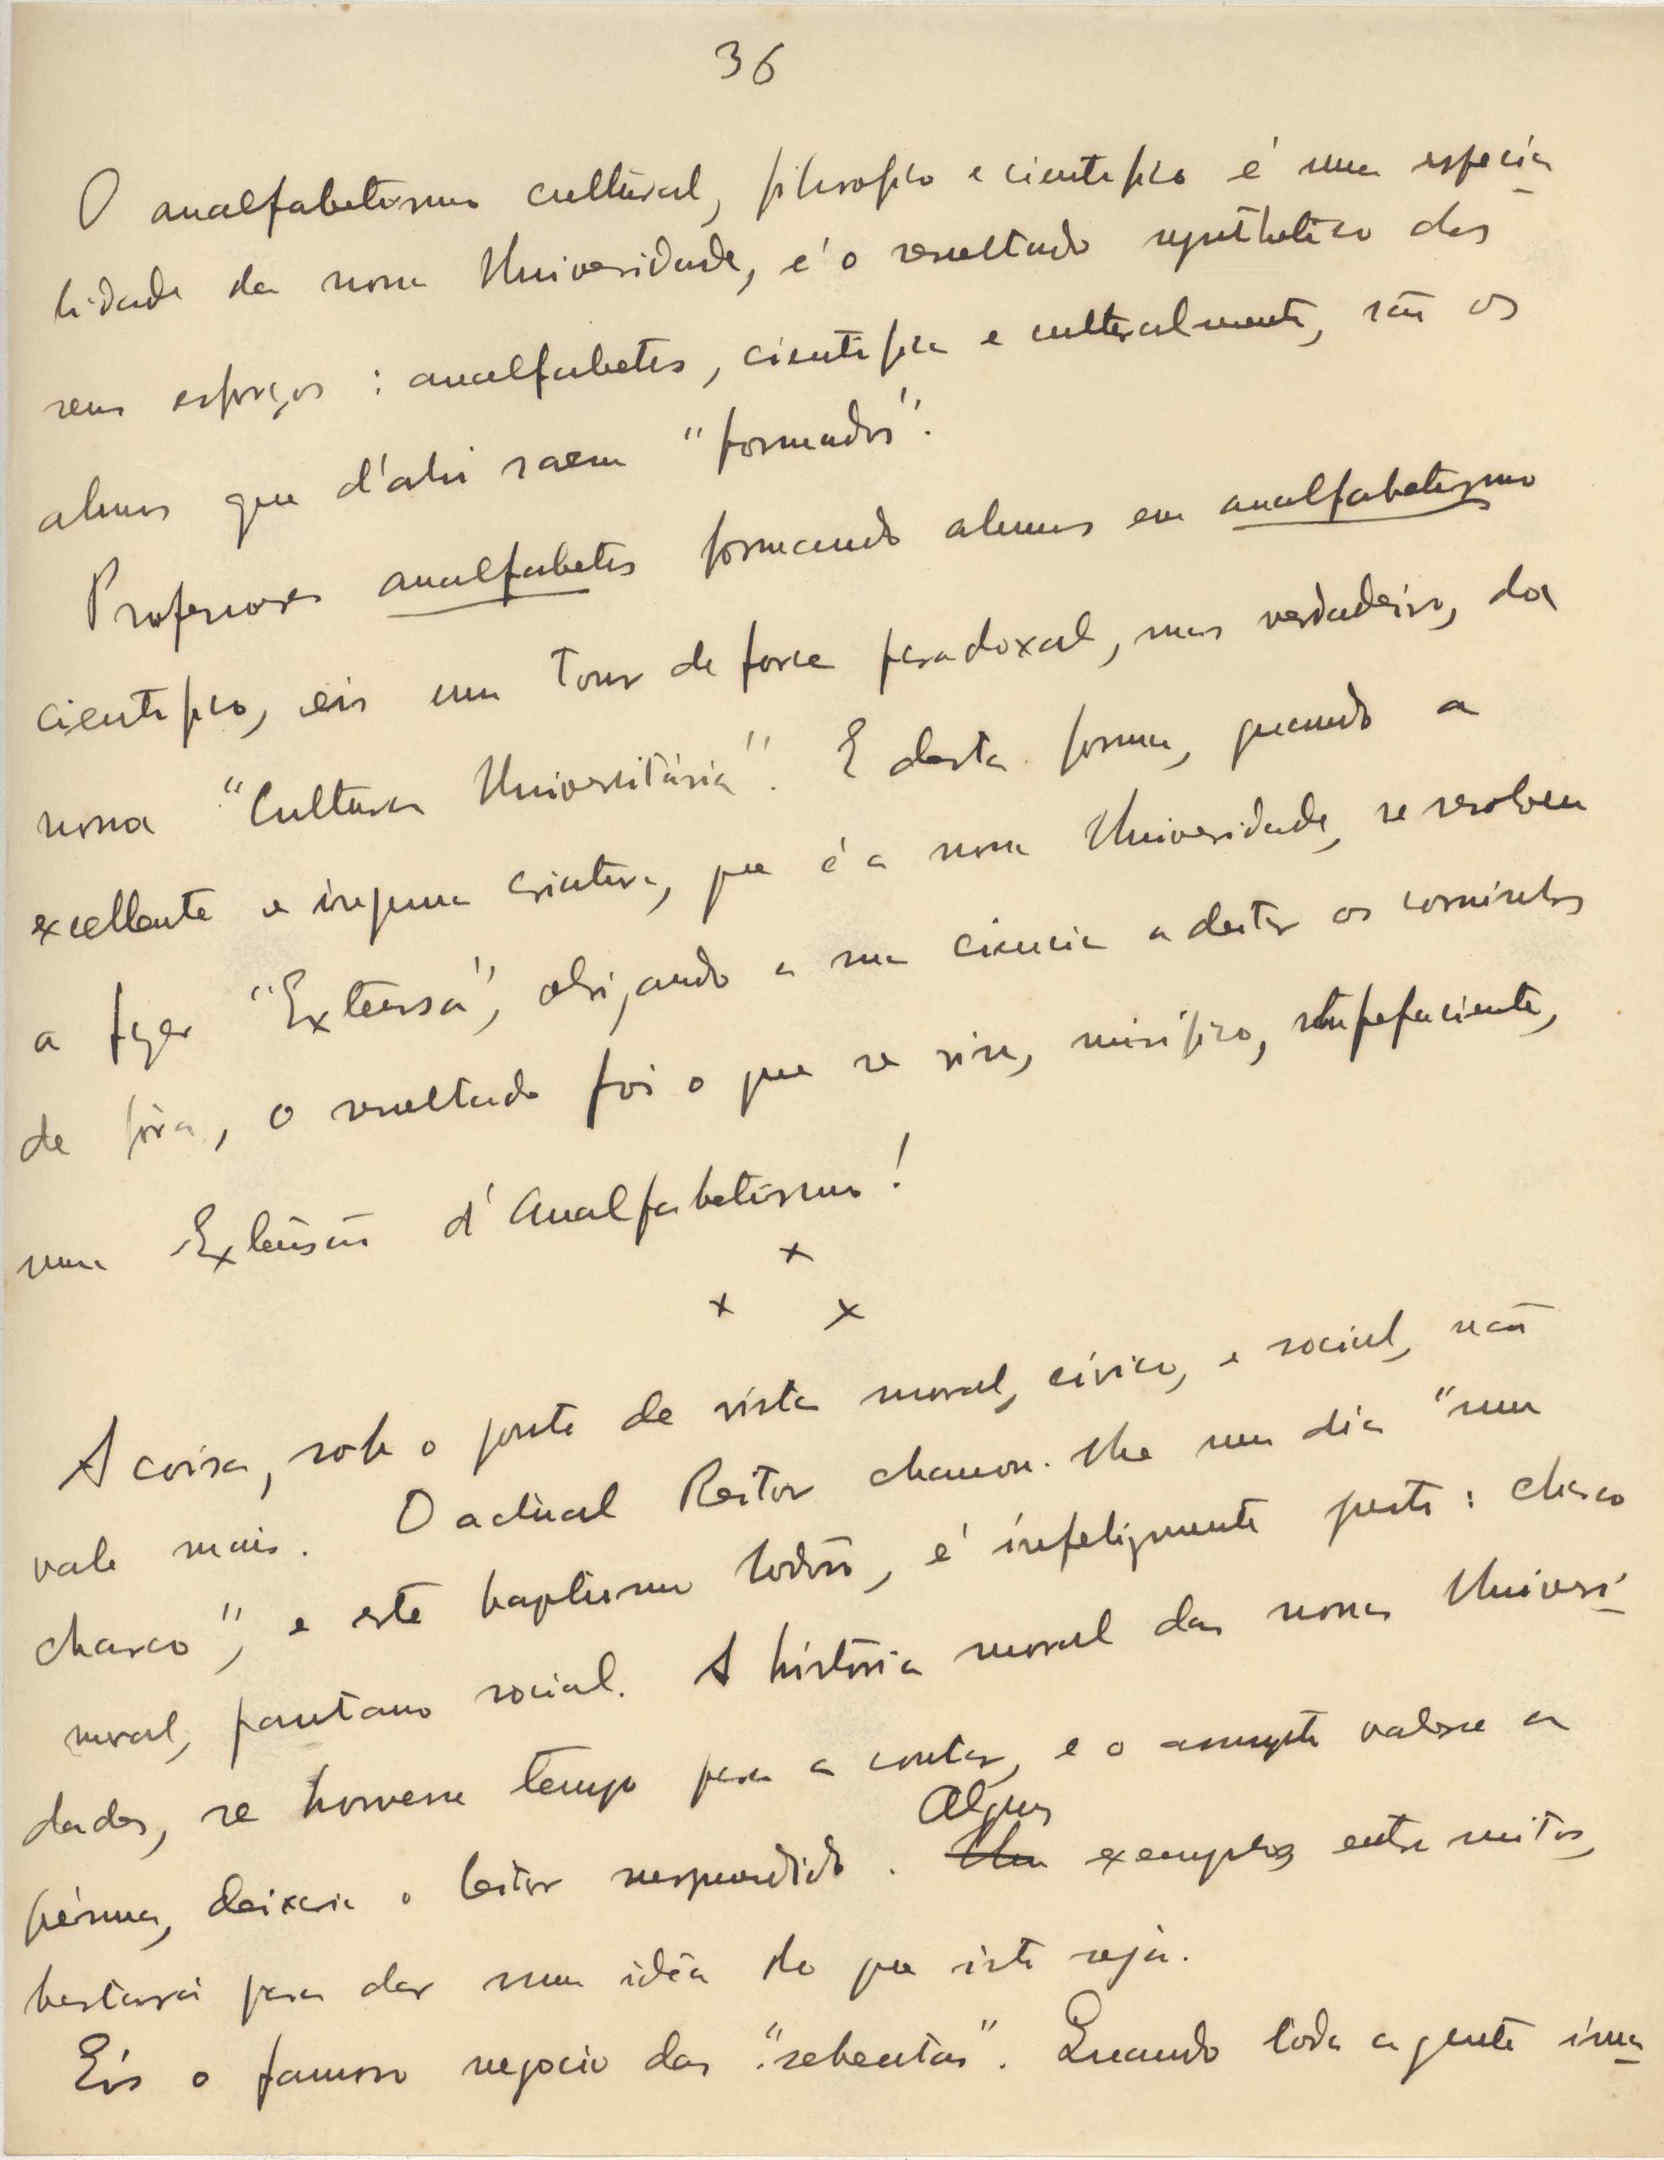 36
O analfabetismo cultural, filosofico e cientifico é uma especia-
lidade da nossa Universidade, é o resultado synthetico dos
seus esforços : analfabetos, cientifica e culturalmente, são os
alunos que d'ahi saem "formados".
Professores analfabetos formando alunos em analfabetismo
cientifico, eis um tour de force paradoxal, mas verdadeiro, da
nossa "Cultura Universitária". E desta forma, quando a
excellente e ingenua criatura, que é a nossa Universidade, se resolveu
a fazer "Extensã", obrigando a sua ciencia a deitar os corninhos
de fóra, o resultado foi o que se viu, mirifico, stupefaciente,
uma Extensão d'Analfabetismo!
x
x x
A coisa, sob o ponto de vista moral, civico, e social, não
vale mais. O actual Reitor chamou-lhe um dia "um
charco", e este baptismo todos, é infelizmente justo : charco
moral, pantano social. A história moral das nossas Universi-
dades, se houvesse tempo para a contar, e o assumpto valesse a
pênna, deixaria o leitor surpreendido. Alguns exemplos entre mitos,
bastará para dar uma idêa do que isto seja.
Eis o famoso negocio das "sebentas". Quando toda a gente ima-